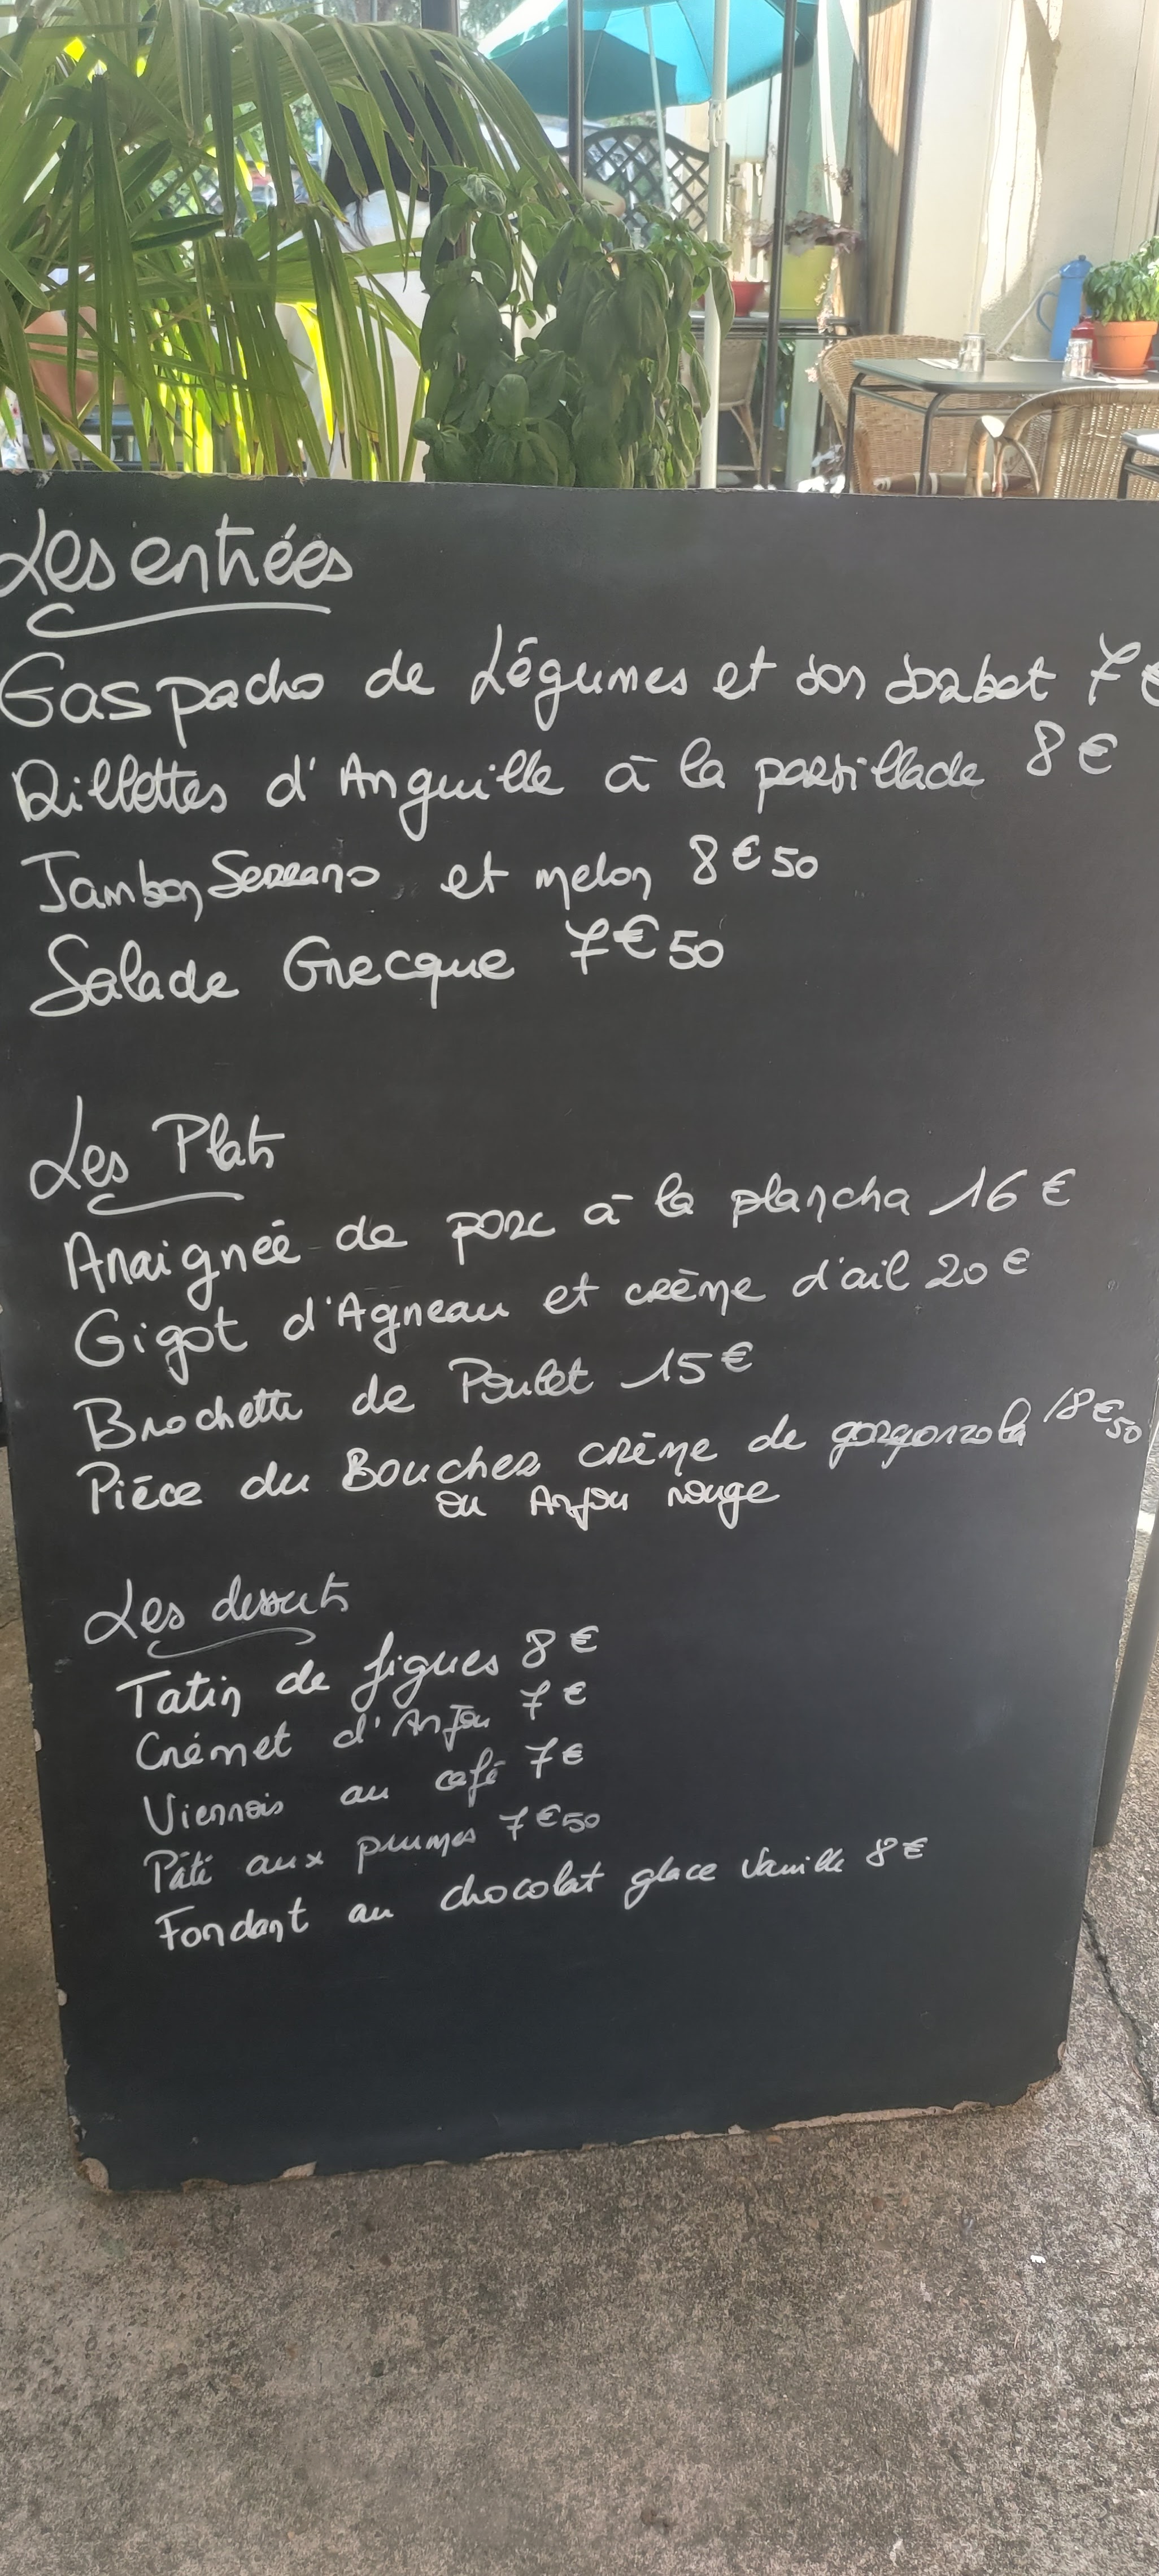 Les entrées
Gaspacho de Légumes et son sorbet 7€
Rillettes d'Anguille à la persillade 8€
Jambon Serrano et melon 8€50
Salade Grecque 7€50
Les Plats
Araignée de porc à la plancha 16€
Gigot d'Agneau et crème d'ail 20€
Brochette de Poulet 15€
Pièce du Boucher crème de gorgonzola 18€50
ou Anjou rouge
Les desserts
Tatin de figues 8€
Crémet d'Anjou 7€
Viennois au café 7€
Pâté aux prunes 7€50
Fondant au chocolat glace vanille 8€